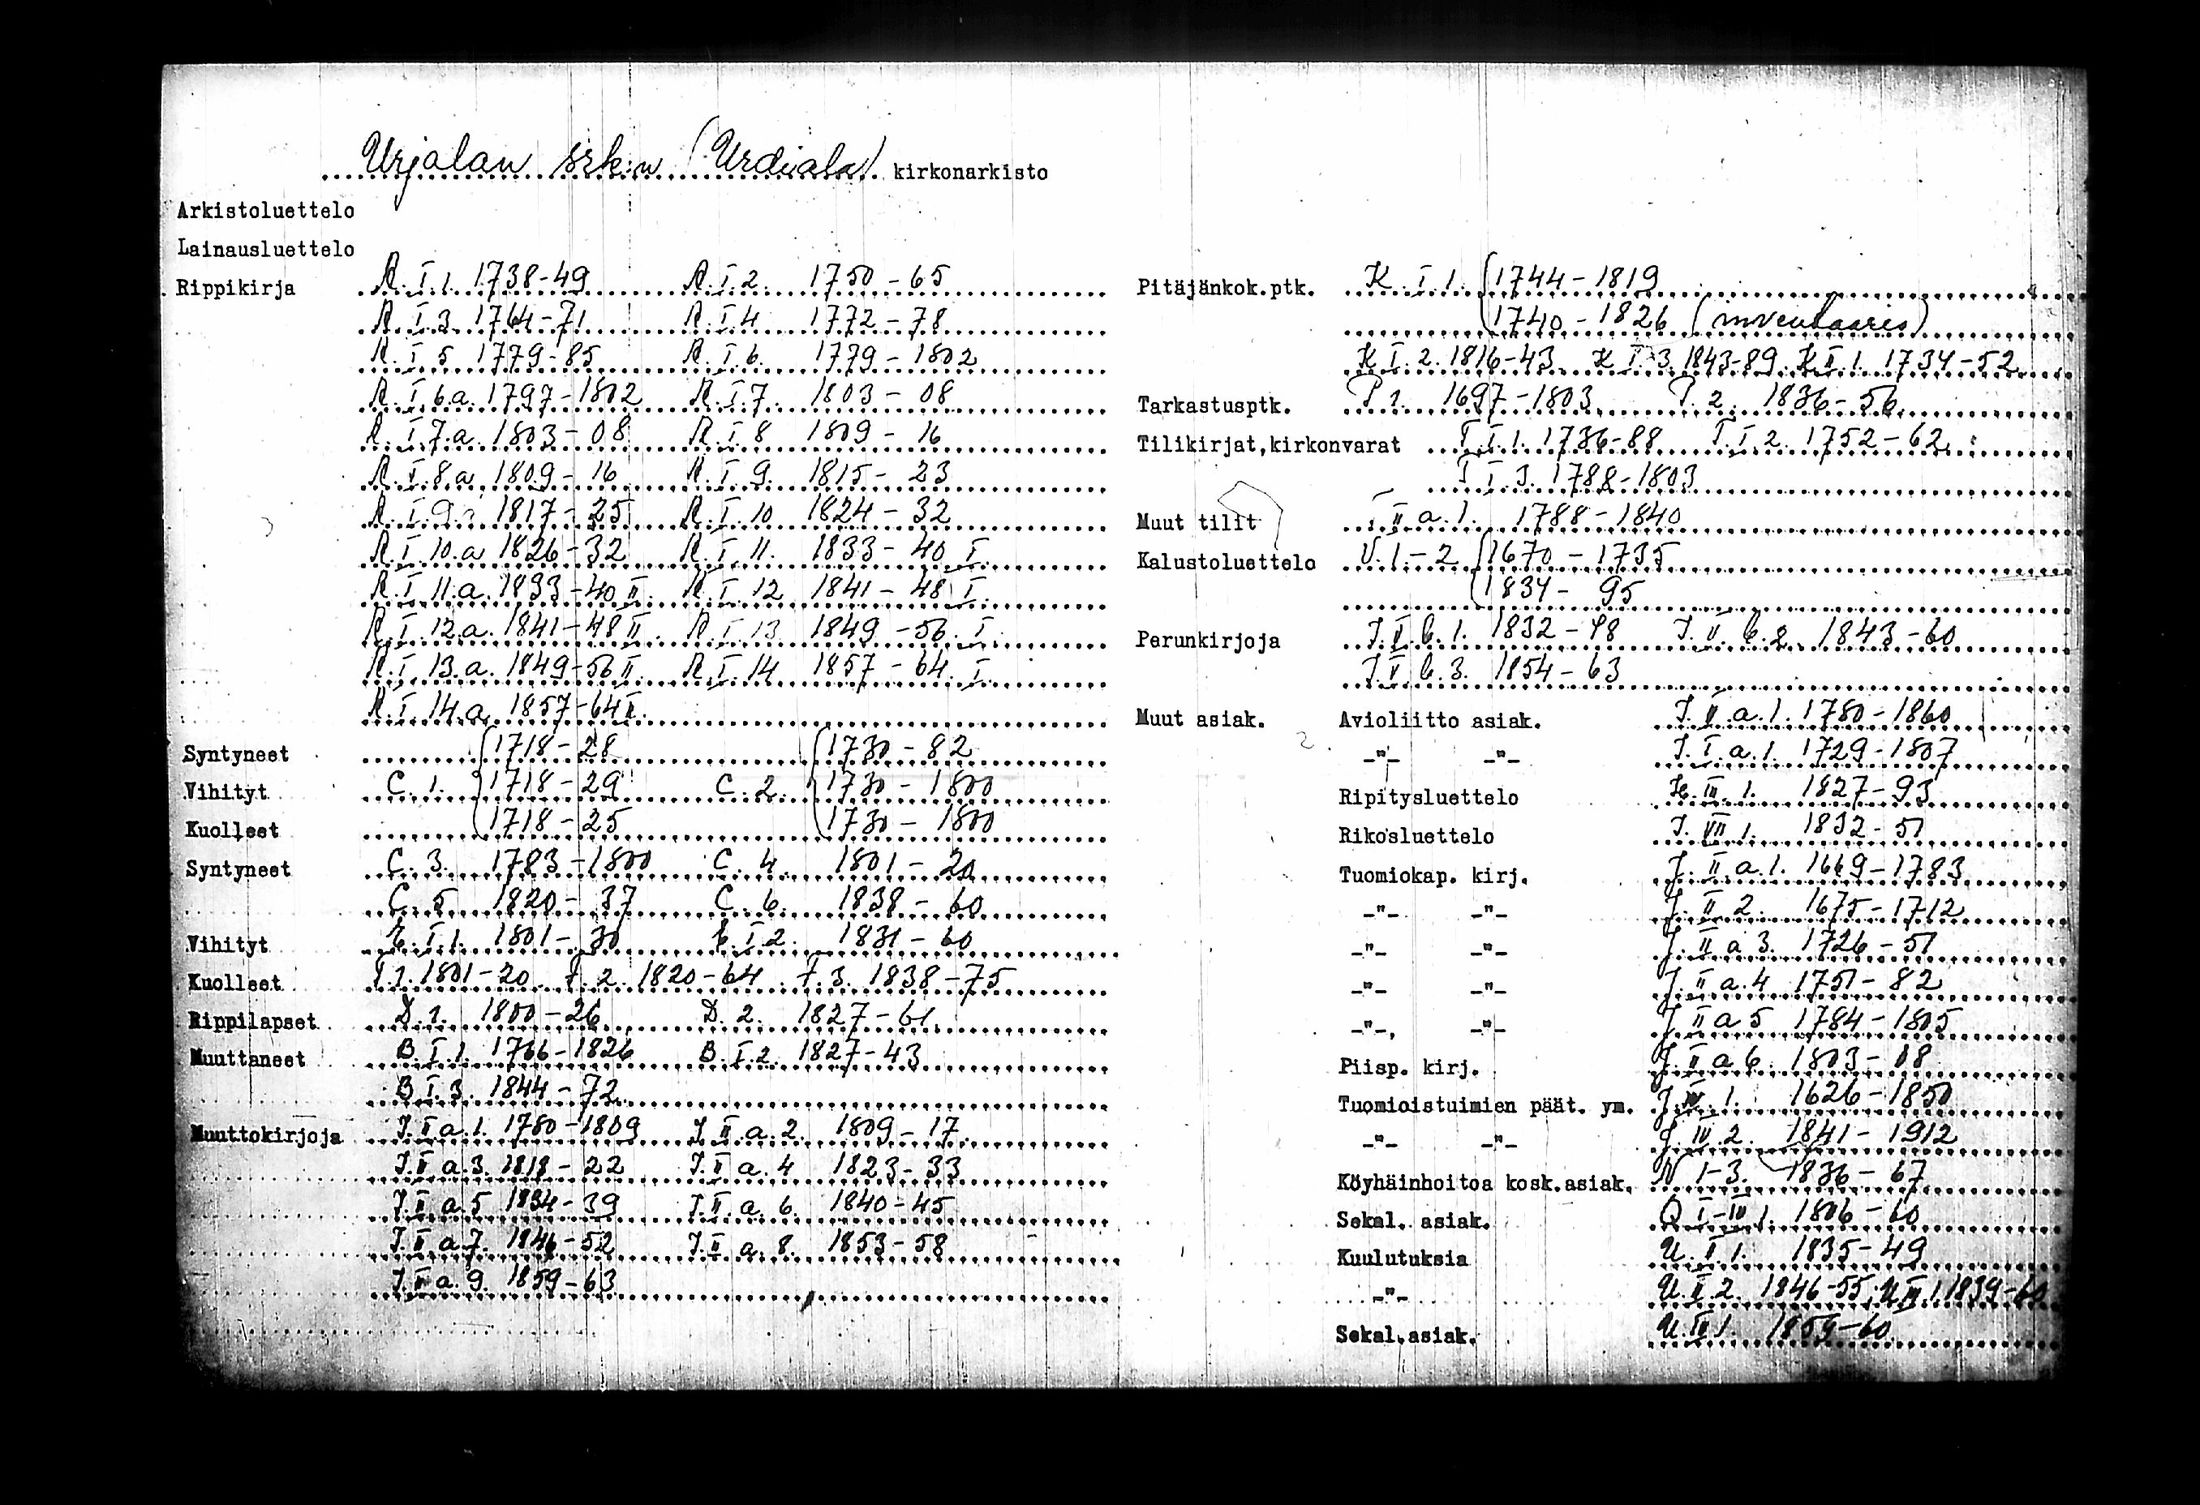 Urjalan srk:n (Urdiala) kirkonarkisto
Arkistoluettelo
Lainausluettelo
Rippikirja R. I. 1. 1738-49 R. I. 2. 1750-65
R. I. 3. 1764-71 R. I 4 1772-78
R. I. 5 1779-85 R. I. 6. 1779-1802
R. I. 6.a. 1797-1802 R. I. 7. 1803-08
R. I. 7.a. 1803-08 R. I 8 1809-16
R. I. 8.a 1809-16 R. I. 9. 1815-23
R. I. 9.a 1817-25 R. I. 10 1824-32
R. I. 10.a 1826-32 R. I. 11. 1833-40 I.
R. I. 11.a. 1833-40 II. R. I. 12 1841-48 I.
R. I. 12.a. 1841-48 II. R. I. 13 1849-56. I.
R. I. 13.a. 1849-56 II. R. I. 14 1857-64. I.
R. I. 14.a. 1857-64 II.
Syntyneet 1718-28 1730-82
Vihityt C. 1. 1718-29 C. 2. 1730-1800
Kuolleet 1718-25 1730-1800
Syntyneet C. 3. 1783-1800 C. 4. 1801-20
C. 5 1820-37 C. 6. 1838-60
Vihityt E. I. 1. 1801-30 E. I. 2. 1831-60
Kuolleet F. 1. 1801-20 F. 2. 1820-64 F. 3. 1838-75
Rippilapset D. 1. 1800-26 D. 2. 1827-61
Muuttaneet B. I. 1. 1766-1826 B. I. 2. 1827-43
B I. 3. 1844-72
Muuttokirjoja J. II a. 1. 1780-1809 J. II. a. 2. 1809-17
J. II a. 3. 1818-22 J. II a. 4 1823-33
J. II a. 5 1834-39 J. II. a. 6. 1840-45
J. II a. 7. 1846-52 J. II a. 8. 1853-58
J. II a. 9. 1859-63
Pitäjänkok.ptk. K. I. 1. 1744-1819
1740-1826 (inventaares)
K I. 2. 1816-43. K I. 3. 1843-89. K II. 1. 1734-52
Tarkastusptk. P 1. 1697-1803 P. 2. 1836-56
Tilikirjat,kirkonvarat T. I. 1. 1736-88 T. I. 2. 1752-62
T I. 3. 1788-1803
Muut tilit T II a. 1. 1788-1840
Kalustoluettelo U. 1-2 1670-1735
1834-95
Perunkirjoja J. V. b. 1. 1832-48 J. V. b. 2. 1843-60
J. V. b. 3. 1854-63
Muut asiak. Avioliitto asiak. J. V. a. 1. 1780-1860
-"- -"- J. I. a. 1. 1729-1807
Ripitysluettelo H. III. 1. 1827-93
Rikosluettelo J. VII 1. 1832-51
Tuomiokap. kirj. J. II. a. 1. 1669-1783
-"- -"- J. II 2. 1675-1712
-"- -"- J. II a 3. 1726-51
-"- -"- J. II a. 4 1751-82
-"- -"- J. II a 5 1784-1805
Piisp. kirj. J. II a 6. 1803-08
Tuomioistuimien päät. ym. J. IV. 1. 1626-1850
-"- -"- J. IV. 2. 1841-1912
Köyhäinhoitoa kosk.asiak. N 1-3. 1836-67
Sekal. asiak. Q I-IV 1. 1806-60
Kuulutuksia U. II 1. 1835-49
-"- U. II. 2. 1846-55, U III. 1. 1839-60
Sekal.asiak. U. IV 1. 1859-60